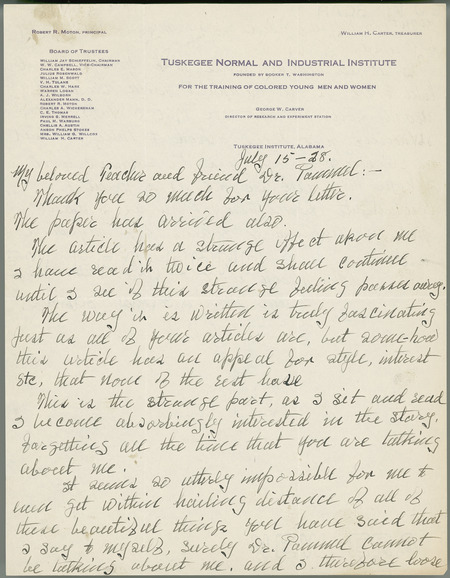 ROBERT R. MOTON, PRINCIPAL
WILLIAM H. CARTER, TREASURER
BOARD OF TRUSTEES
WILLIAM JAY SCHIEFFELIN, CHAIRMAN
W. W. CAMPBELL, VICE-CHAIRMAN
CHARLES E. MASON
JULIUS ROSENWALD
WILLIAM M. SCOTT
V. H. TULANE
CHARLES W. HARE
WARREN LOGAN
A. J. WILBORN
ALEXANDER MANN, D. D.
ROBERT R. MOTON
CHARLES A. WICKERSHAM
C. E. THOMAS
WINFIELD S. MERRELL
PAUL M. WARBURG
CHELLIS A. AUSTIN
ANSON PHELPS STOKES
MRS. WILLIAM G. WILLCOX
WILLIAM H. CARTER
TUSKEGEE NORMAL AND INDUSTRIAL INSTITUTE
FOUNDED BY BOOKER T. WASHINGTON
FOR THE TRAINING OF COLORED YOUNG MEN AND WOMEN
GEORGE W. CARVER
DIRECTOR OF RESEARCH AND EXPERIMENT STATION
TUSKEGEE INSTITUTE, ALABAMA
July 15-28.
My beloved Teacher and friend Dr. Pammel:-
Thank you so much for your letter.
The paper has arrived also.
The article has a strange effect upon me
I have read it twice and shall continue
until I see if this strange feeling passes away.
The way it is written is truly fascinating
Just as all of your articles are, but some-how
this article has an appeal for style, interest
etc, that none of the rest have
This is the strange part, as I set and read
I become absorbingly interested in the story,
forgetting all the time that you are talking
about me.
It seems so utterly impossible for me to
even get within hailing distance of all of
these beautiful things you have said that
I say to myself, surely Dr. Pammel cannot
be talking about me. and I therefore loose